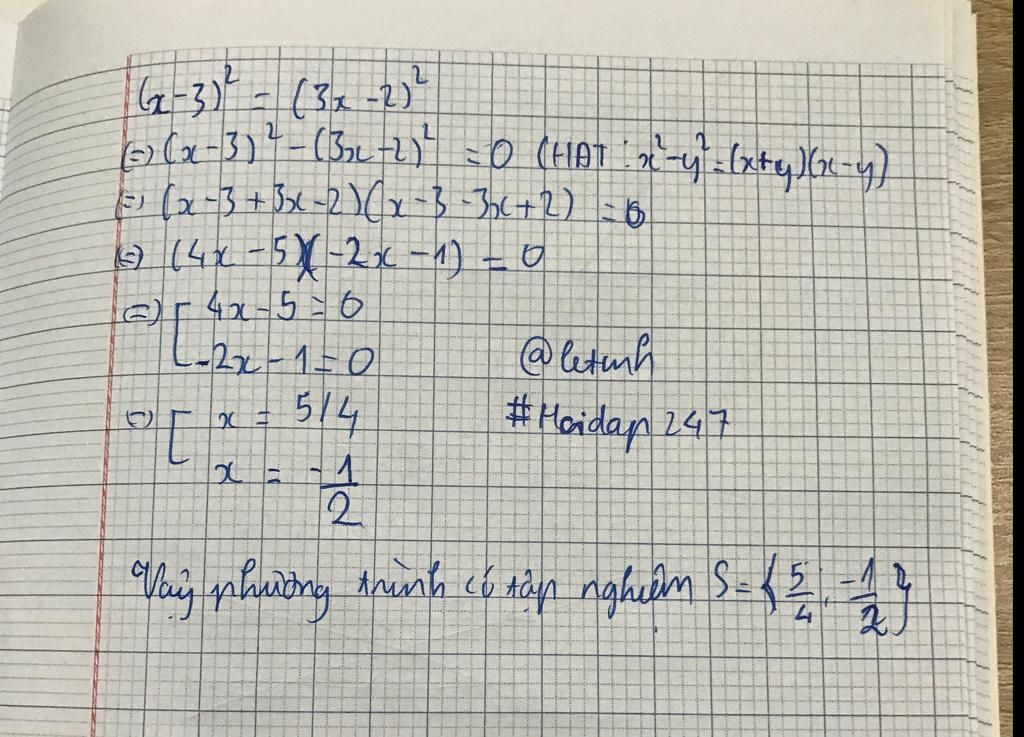 (x-3)² = (3x-2)²
⇔ (x-3)² - (3x-2)² = 0 (HĐT : x²-y²=(x+y)(x-y)
⇔ (x-3+3x-2)(x-3-3x+2) = 0
⇔ (4x-5)(-2x-1) = 0
⇔ [ 4x-5=0
-2x-1=0
@letinh
⇔ [ x = 5/4
#Hoidap247
x = -1/2
Vậy phương trình có tập nghiệm S={5/4; -1/2}